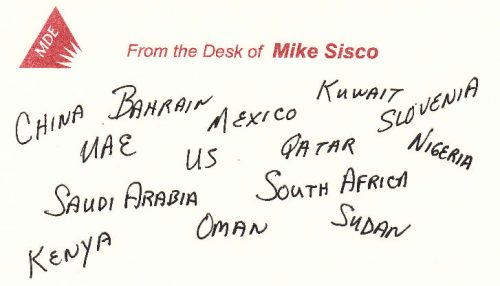 MDE
From the Desk of Mike Sisco
CHINA BAHRAIN MEXICO KUWAIT SLOVENIA
UAE US QATAR NIGERIA
SAUDI ARABIA SOUTH AFRICA
KENYA OMAN SUDAN